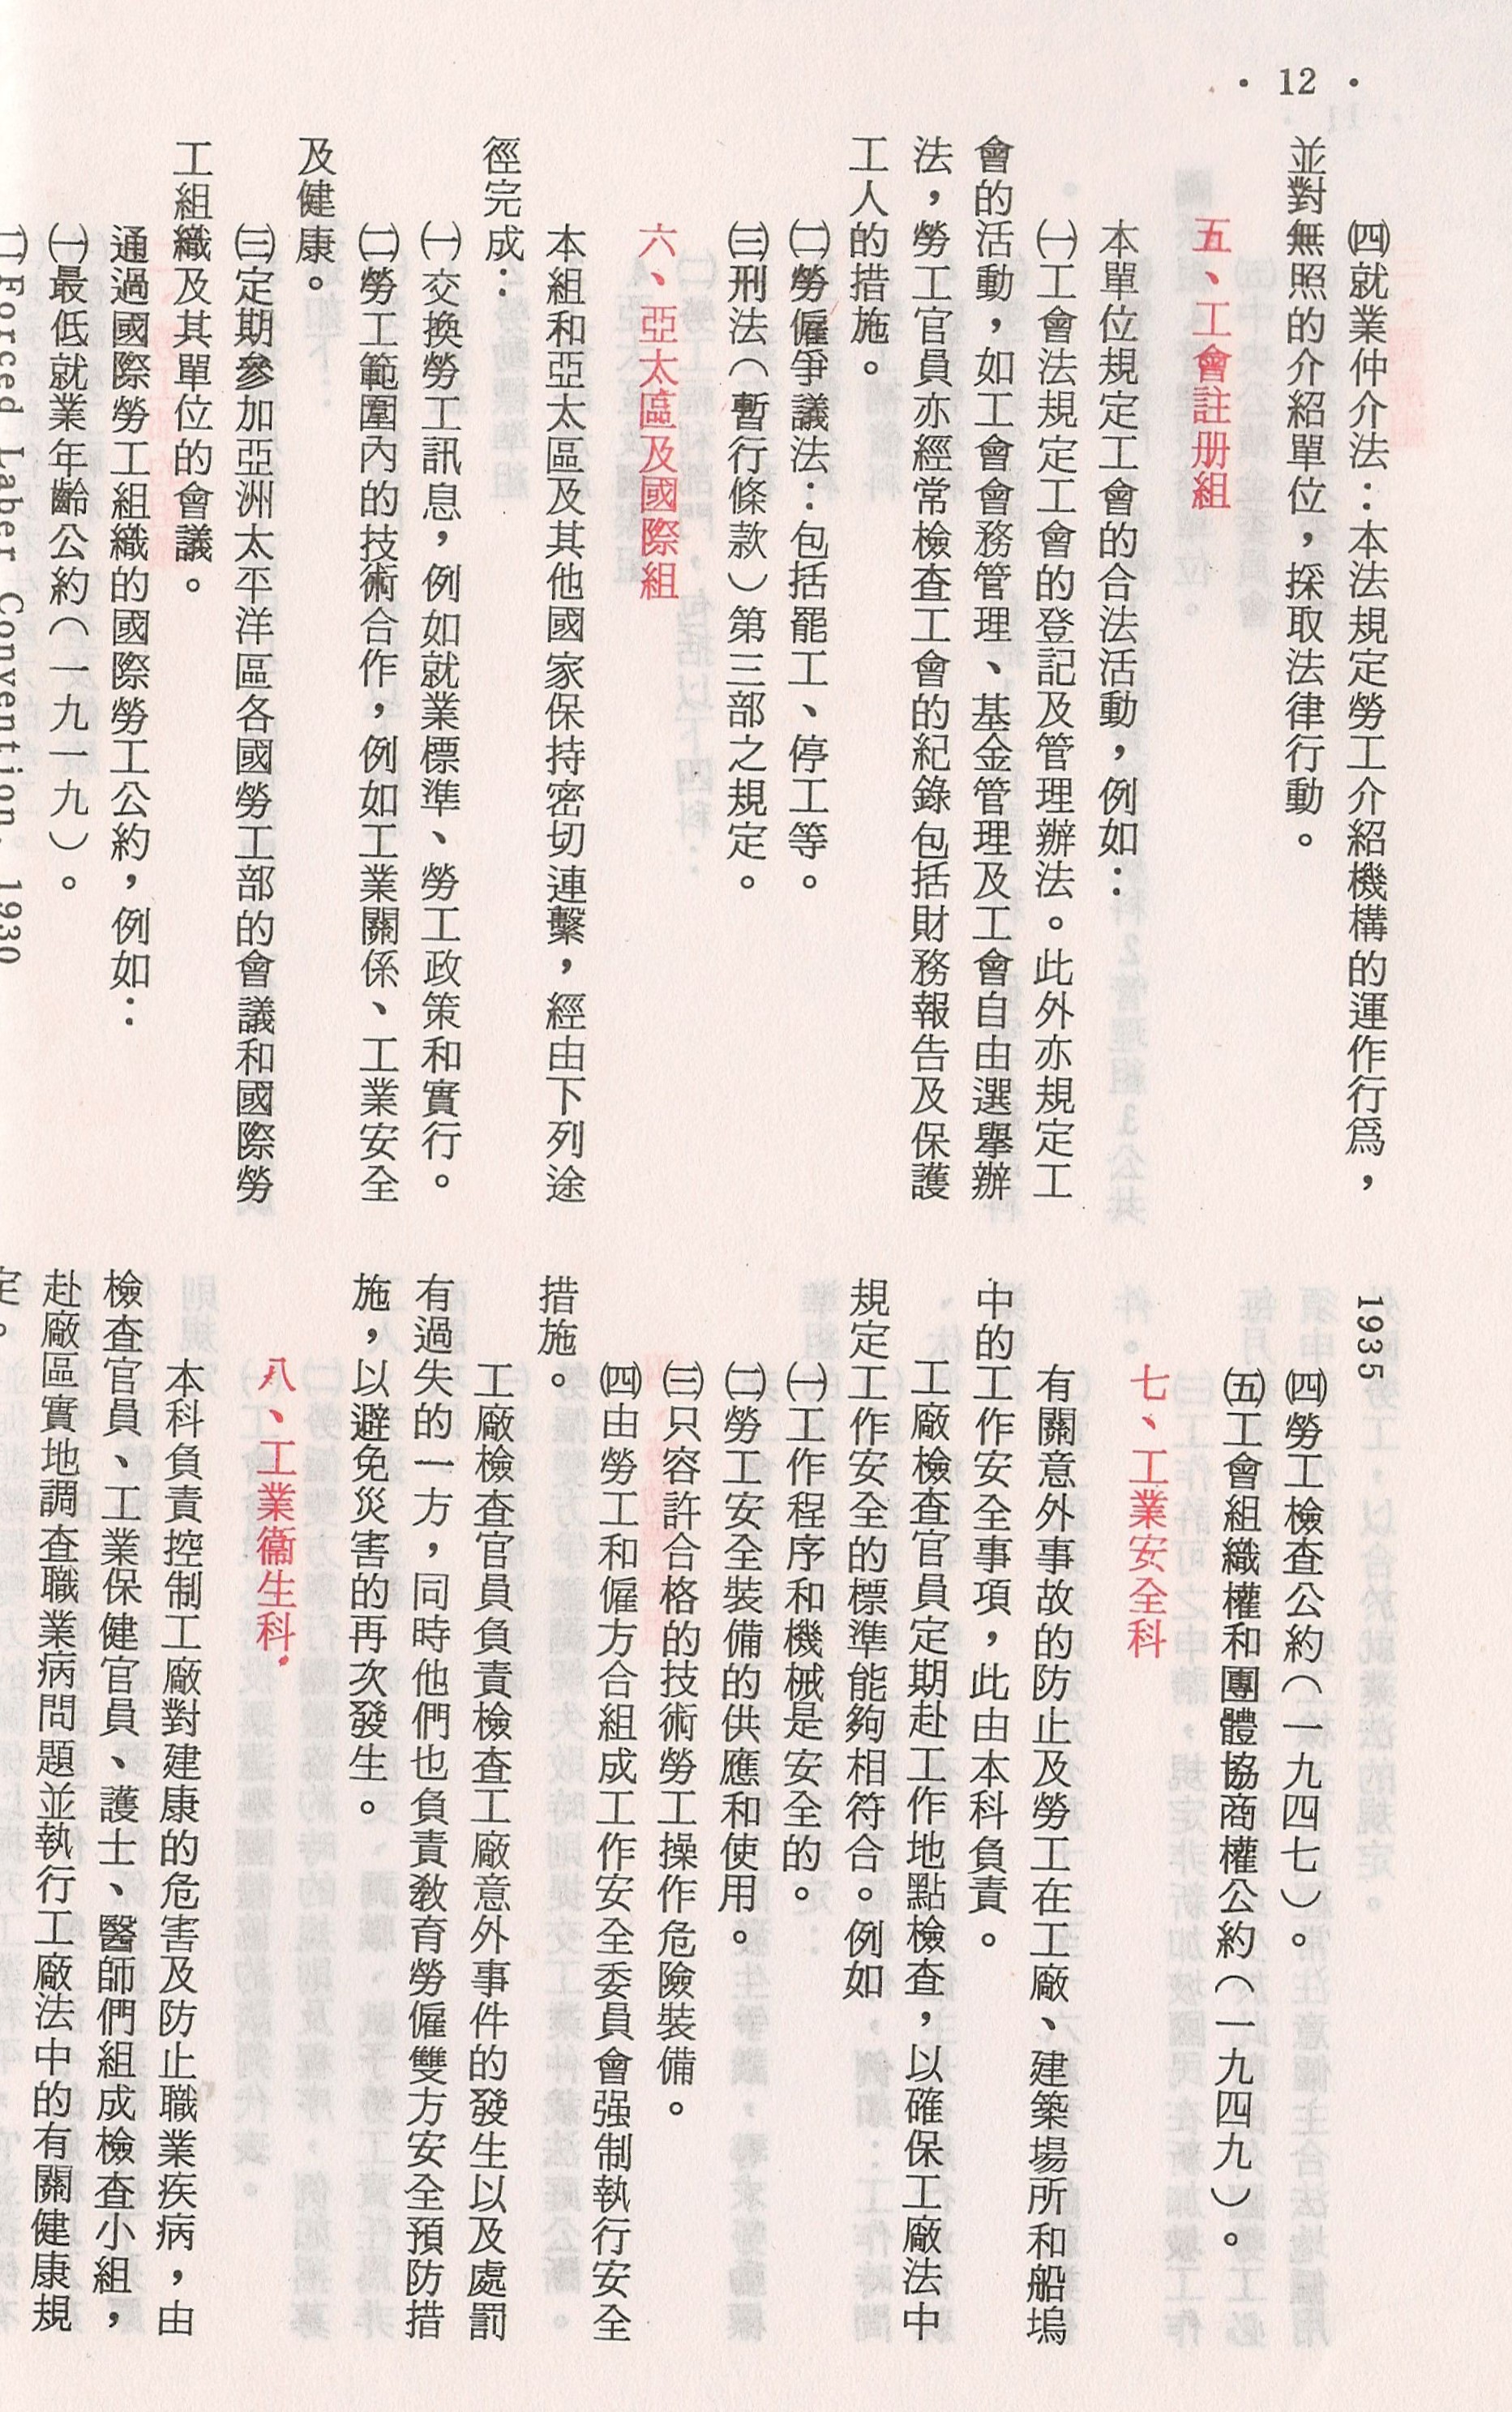 · 12 ·
㈣就業仲介法：本法規定勞工介紹機構的運作行爲，
並對無照的介紹單位，採取法律行動。
五、工會註册組
本單位規定工會的合法活動，例如：
㈠工會法規定工會的登記及管理辦法。此外亦規定工
會的活動，如工會會務管理、基金管理及工會自由選舉辦
法，勞工官員亦經常檢查工會的紀錄包括財務報告及保護
工人的措施。
㈡勞僱爭議法：包括罷工、停工等。
㈢刑法（暫行條款）第三部之規定。
六、亞太區及國際組
本組和亞太區及其他國家保持密切連繫，經由下列途
徑完成：
㈠交換勞工訊息，例如就業標準、勞工政策和實行。
㈡勞工範圍內的技術合作，例如工業關係、工業安全
及健康。
㈢定期參加亞洲太平洋區各國勞工部的會議和國際勞
工組織及其單位的會議。
通過國際勞工組織的國際勞工公約，例如：
㈠最低就業年齡公約（一九一九）。
㈡Forced Laber Convention, 1930
1935
㈣勞工檢查公約（一九四七）。
㈤工會組織權和團體協商權公約（一九四九）。
七、工業安全科
有關意外事故的防止及勞工在工廠、建築場所和船塢
中的工作安全事項，此由本科負責。
工廠檢查官員定期赴工作地點檢查，以確保工廠法中
規定工作安全的標準能夠相符合。例如
㈠工作程序和機械是安全的。
㈡勞工安全裝備的供應和使用。
㈢只容許合格的技術勞工操作危險裝備。
㈣由勞工和僱方合組成工作安全委員會强制執行安全
措施。
工廠檢查官員負責檢查工廠意外事件的發生以及處罰
有過失的一方，同時他們也負責教育勞僱雙方安全預防措
施，以避免災害的再次發生。
八、工業衞生科，
本科負責控制工廠對建康的危害及防止職業疾病，由
檢查官員、工業保健官員、護士、醫師們組成檢查小組，
赴廠區實地調查職業病問題並執行工廠法中的有關健康規
定。